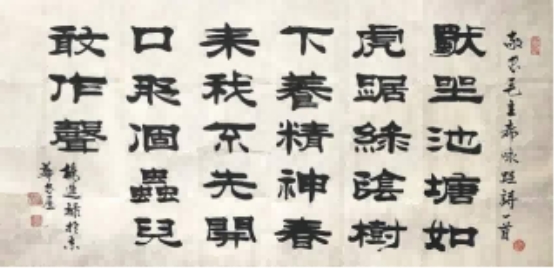 敬書毛主席咏蛙詩一首
獨坐池塘如
虎踞綠陰樹
下養精神春
來我不先開
口那個蟲兒
敢作聲
於京